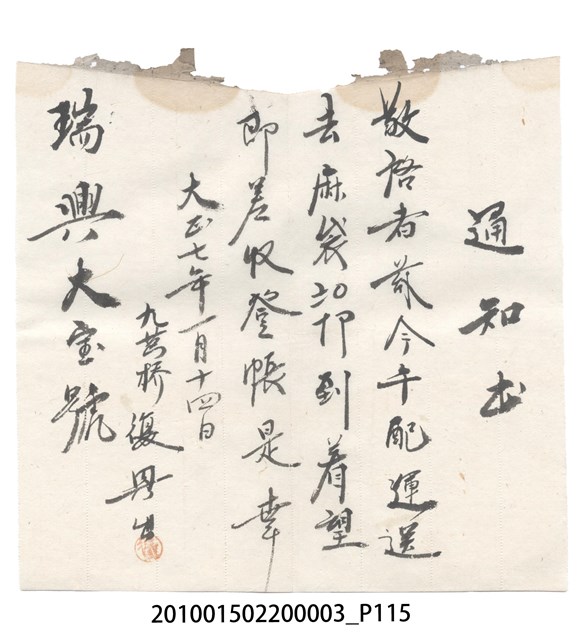 通知書
敬啓者茲今午配運送
去麻袋20押到着望
即差收登帳是幸
大正七年一月十四日
九芎桥復興
瑞興大宝號
201001502200003_P115